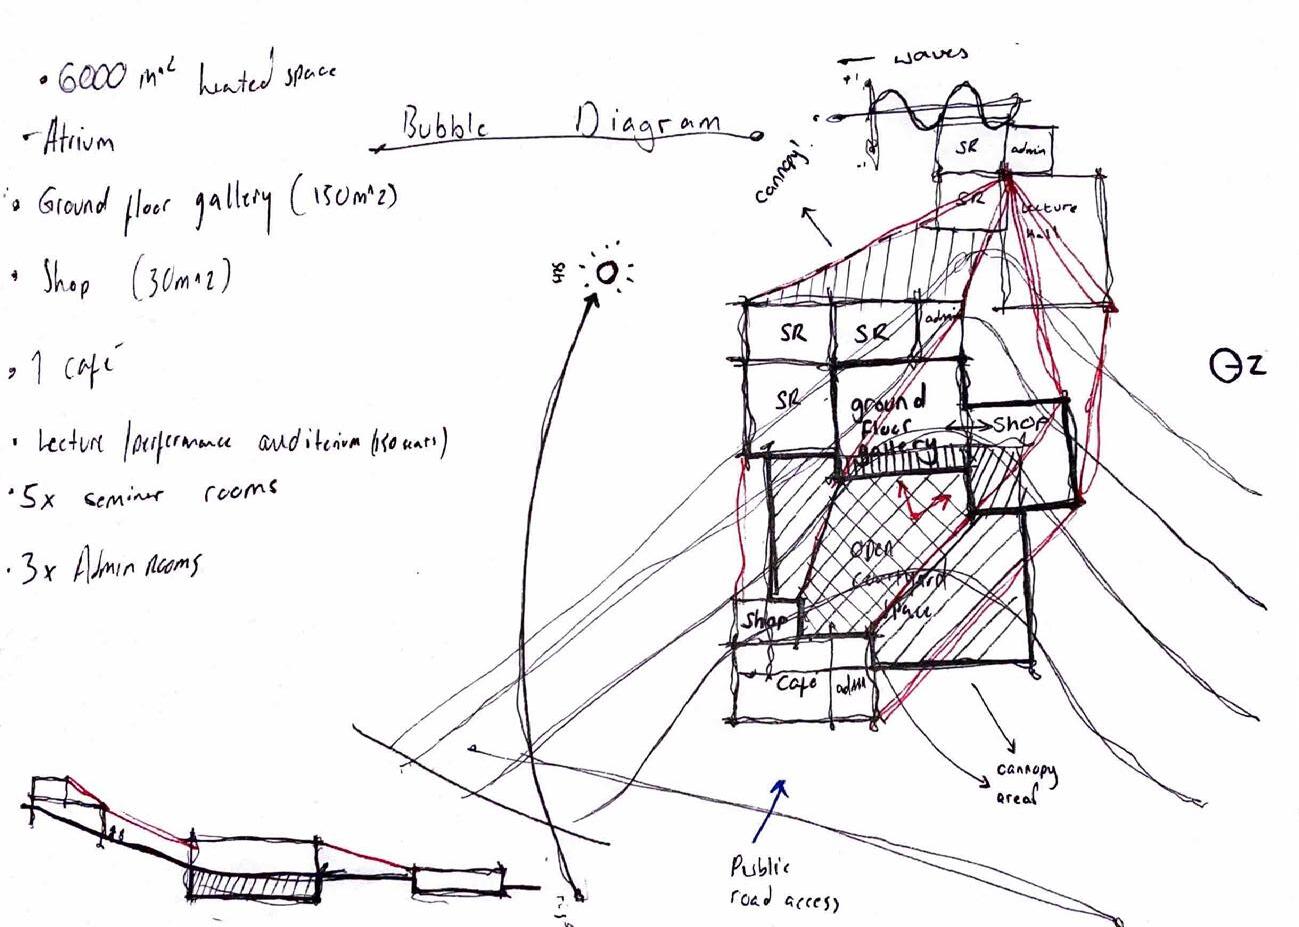 • 6000 m^2 heated space
- Atrium
• Ground floor gallery (150m^2)
• Shop (30m^2)
• 1 café
• Lecture /performance auditerium (150 seats)
• 5x seminer rooms
• 3x Admin rooms
Bubble Diagram
waves
+1
-1
cannopy!
SR admin
SR Lecture Hall
SR SR admin
SR
ground floor gallery
Shop
open courtyard space
Shop
Café adm
cannopy
areas
Public
road access
Z